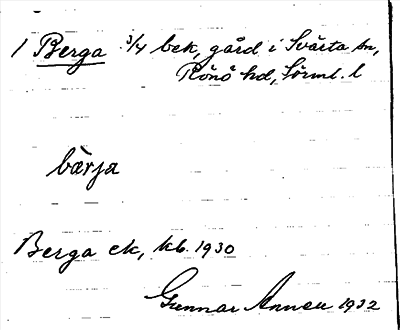 1 Berga 3/4 bek, gård i Svärta sn,
Rönö hd, Sörml. l
bä̀rja
Berga ek, kb. 1930
Gunnar Annell 1932